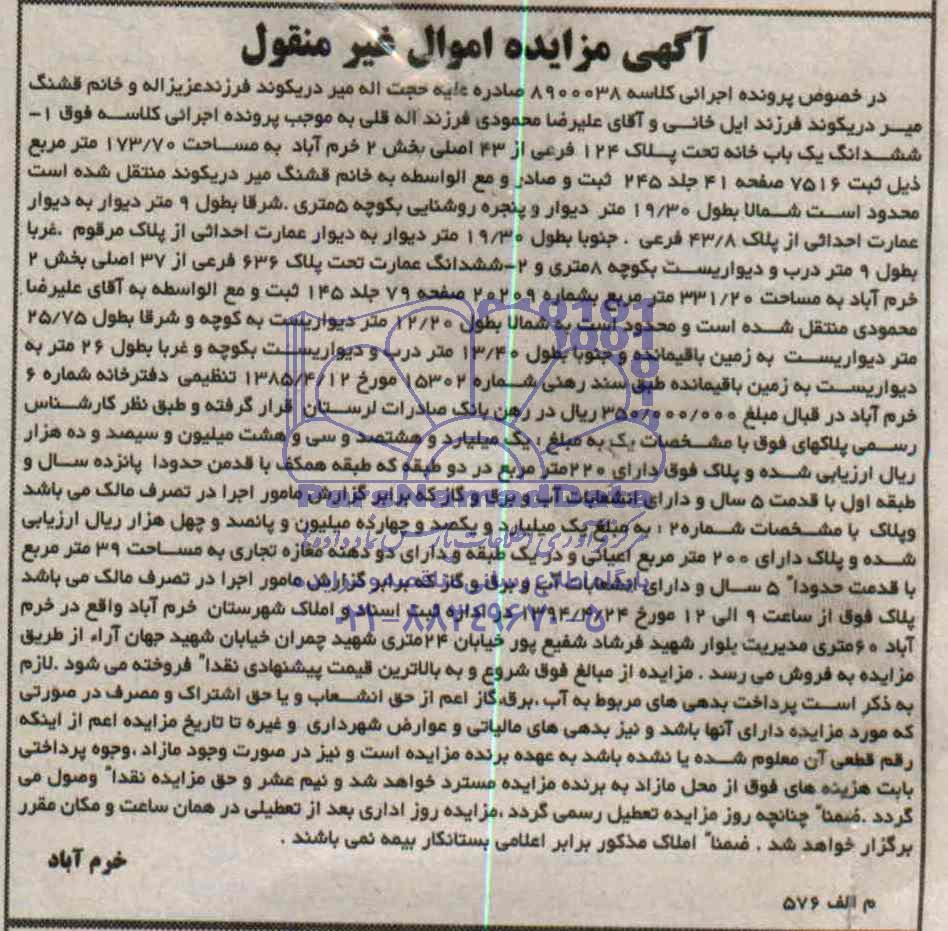 آگهی مزایده اموال غیر منقول
در خصوص پرونده اجرائی کلاسه ۸۹۰۰۰۳۸ صادره علیه حجت اله میر دریکوند فرزندعزیزاله و خانم قشنگ
میر دریکوند فرزند ایل خانی و آقای علیرضا محمودی فرزند اله قلی به موجب پرونده اجرائی کلاسه فوق ۱-
ششدانگ یک باب خانه تحت پلاک ۱۲۴ فرعی از ۴۳ اصلی بخش ۲ خرم آباد به مساحت ۱۷۳/۷۰ متر مربع
ذیل ثبت ۷۵۱۶ صفحه ۴۱ جلد ۲۴۵ ثبت و صادر و مع الواسطه به خانم قشنگ میر دریکوند منتقل شده است
محدود است شمالا بطول ۱۹/۳۰ متر دیوار و پنجره روشنایی بکوچه ۵متری .شرقا بطول ۹ متر دیوار به دیوار
عمارت احداثی از پلاک ۴۳/۸ فرعی . جنوبا بطول ۱۹/۳۰ متر دیوار به دیوار عمارت احداثی از پلاک مرقوم .غربا
بطول ۹ متر درب و دیواریست بکوچه ۸متری و ۲-ششدانگ عمارت تحت پلاک ۶۳۶ فرعی از ۳۷ اصلی بخش ۲
خرم آباد به مساحت ۳۳۱/۲۰ متر مربع بشماره ۲۰۲۰۹ صفحه ۷۹ جلد ۱۴۵ ثبت و مع الواسطه به آقای علیرضا
محمودی منتقل شده است و محدود است به شمالا بطول ۱۲/۲۰ متر دیواریست به کوچه و شرقا بطول ۲۵/۷۵
متر دیواریست به زمین باقیمانده و جنوبا بطول ۱۳/۴۰ متر درب و دیواریست بکوچه و غربا بطول ۲۶ متر به
دیواریست به زمین باقیمانده طبق سند رهنی شماره ۱۵۳۰۲ مورخ ۱۳۸۵/۴/۱۲ تنظیمی دفترخانه شماره ۶
خرم آباد در قبال مبلغ ۳۵۰/۰۰۰/۰۰۰ ریال در رهن بانک صادرات لرستان قرار گرفته و طبق نظر کارشناس
رسمی پلاکهای فوق با مشخصات یک به مبلغ : یک میلیارد و هشتصد و سی و هشت میلیون و سیصد و ده هزار
ریال ارزیابی شده و پلاک فوق دارای ۲۲۰متر مربع در دو طبقه که طبقه همکف با قدمن حدودا پانزده سال و
طبقه اول با قدمت ۵ سال و دارای انشعابات آب و برق و گاز که برابر گزارش مامور اجرا در تصرف مالک می باشد
وپلاک با مشخصات شماره۲ : به مبلغ یک میلیارد و یکصد و چهارده میلیون و پانصد و چهل هزار ریال ارزیابی
شده و پلاک دارای ۲۰۰ متر مربع اعیانی و در یک طبقه و دارای دو دهنه مغازه تجاری به مساحت ۳۹ متر مربع
با قدمت حدودا" ۵ سال و دارای انشعابات آب و برق و گاز که برابر گزارش مامور اجرا در تصرف مالک می باشد
پلاک فوق از ساعت ۹ الی ۱۲ مورخ ۱۳۹۴/۴/۲۴ در اداره ثبت اسناد و املاک شهرستان خرم آباد واقع در خرم
آباد ۶۰متری مدیریت بلوار شهید فرشاد شفیع پور خیابان ۲۴متری شهید چمران خیابان شهید جهان آراء از طریق
مزایده به فروش می رسد . مزایده از مبالغ فوق شروع و به بالاترین قیمت پیشنهادی نقدا" فروخته می شود .لازم
به ذکر است پرداخت بدهی های مربوط به آب ،برق،گاز اعم از حق انشعاب و یا حق اشتراک و مصرف در صورتی
که مورد مزایده دارای آنها باشد و نیز بدهی های مالیاتی و عوارض شهرداری و غیره تا تاریخ مزایده اعم از اینکه
رقم قطعی آن معلوم شده یا نشده باشد به عهده برنده مزایده است و نیز در صورت وجود مازاد ،وجوه پرداختی
بابت هزینه های فوق از محل مازاد به برنده مزایده مسترد خواهد شد و نیم عشر و حق مزایده نقدا" وصول می
گردد .ضمنا" چنانچه روز مزایده تعطیل رسمی گردد ،مزایده روز اداری بعد از تعطیلی در همان ساعت و مکان مقرر
برگزار خواهد شد . ضمنا" املاک مذکور برابر اعلامی بستانکار بیمه نمی باشند .
خرم آباد
م الف ۵۷۶
ParsNamadData
۰۲۱-۸۸۳۴۹۶۷۰-۵